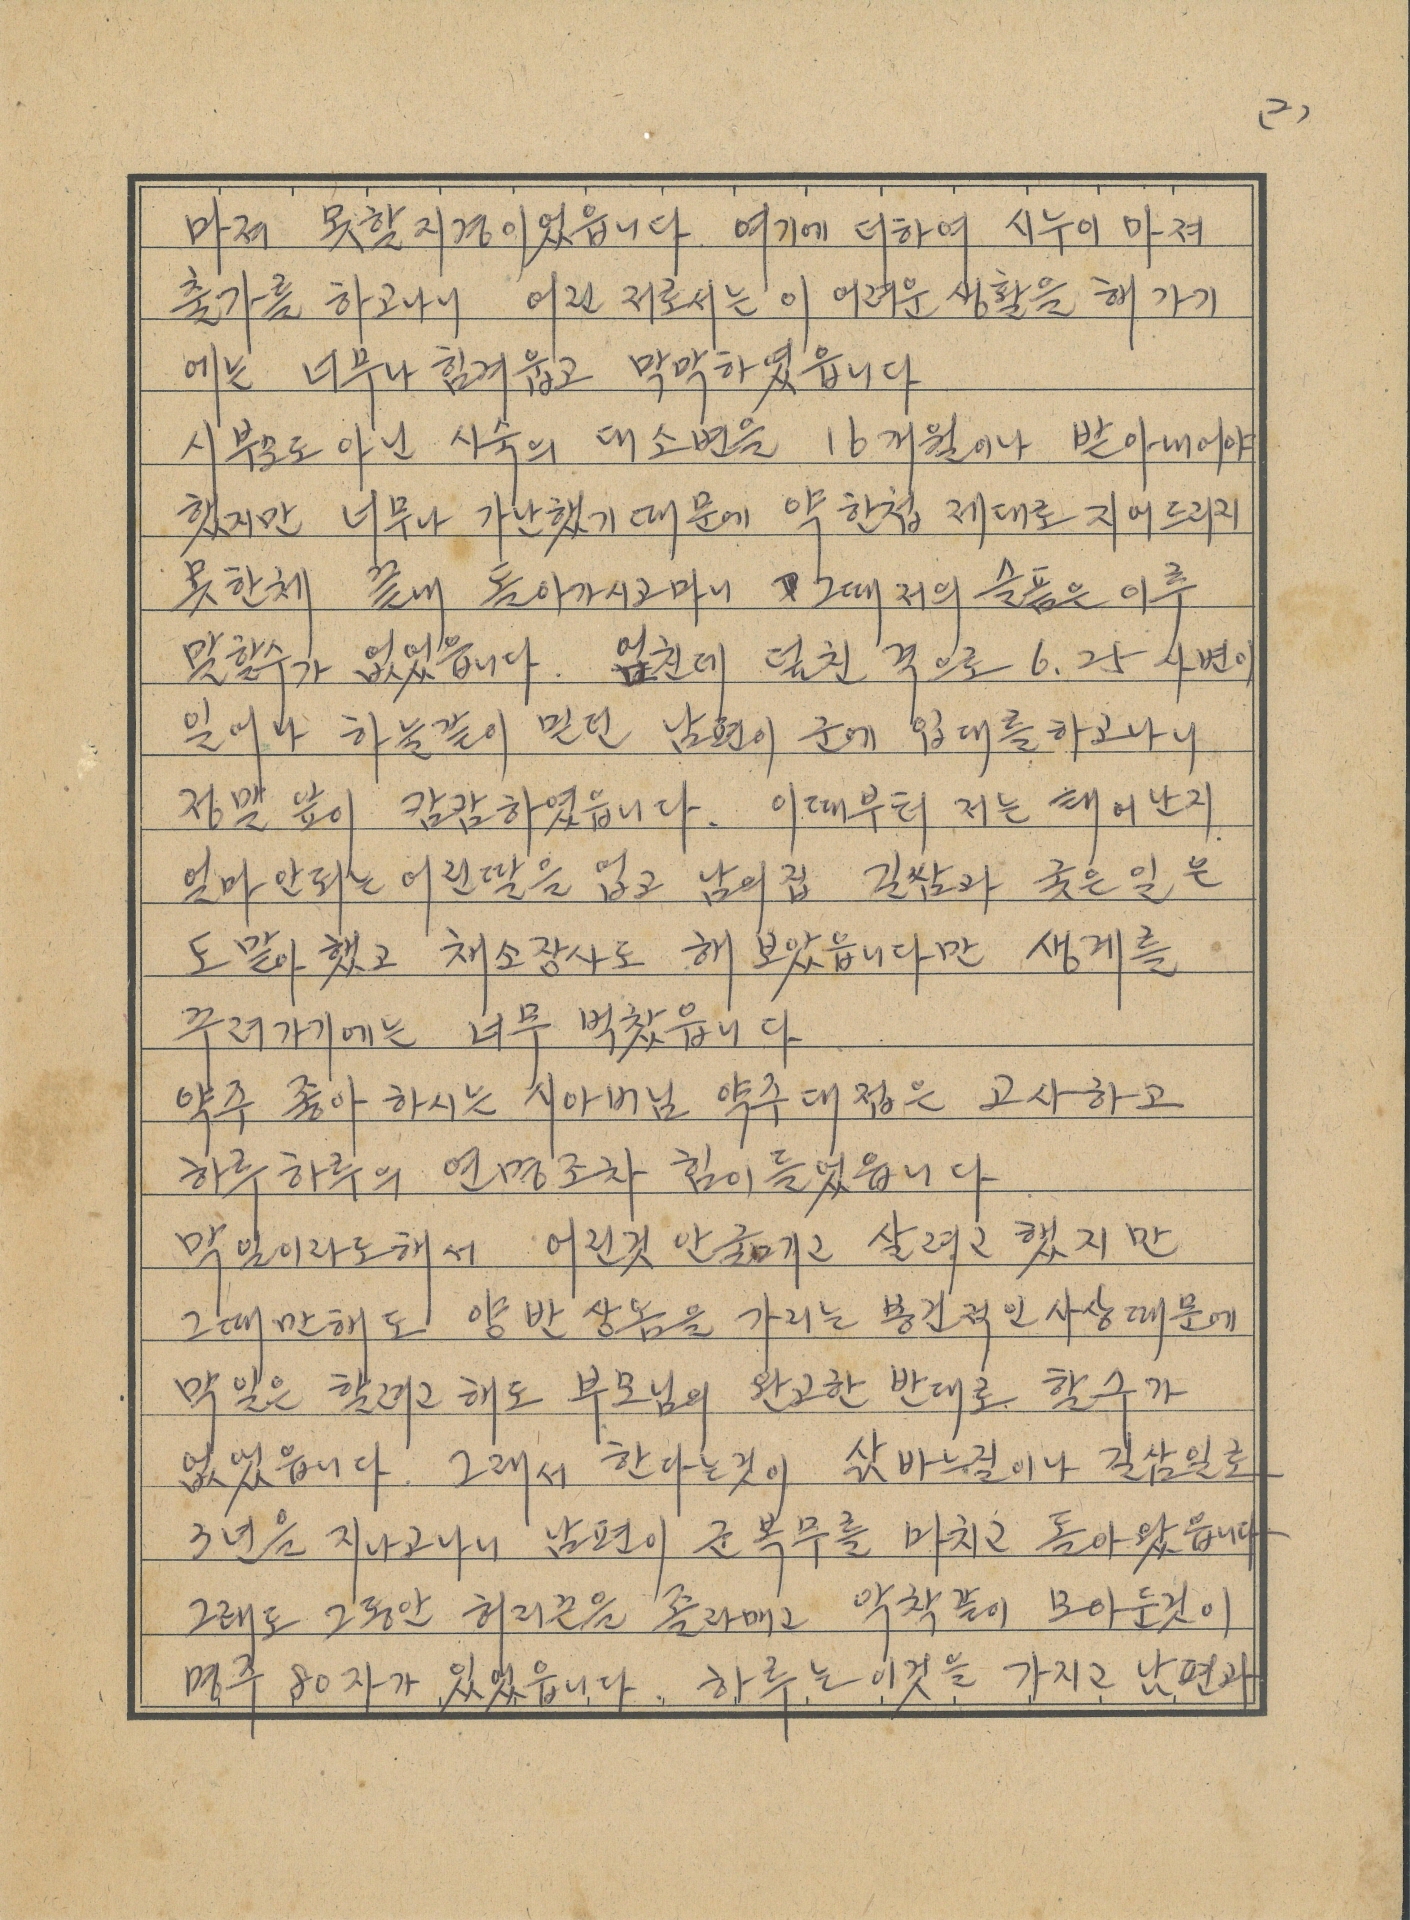 (2)
마져 못할지경이었읍니다. 여기에 더하여 시누이 마져
출가를 하고나니 어린 저로서는 이 어려운 생활을 해 가기
에는 너무나 힘겨웁고 막막하였읍니다
시부모도 아닌 시숙의 대소변을 16개월이나 받아내어야
했지만 너무나 가난했기 때문에 약 한첩 제대로 지어드리지
못한체 끝내 돌아가시고마니 그때 저의 슬픔은 이루
말할수가 없었읍니다. 엎친데 덮친 격으로 6.25 사변이
일어나 하늘같이 믿던 남편이 군에 입대를하고나니
정말 앞이 캄캄하였읍니다. 이때부터 저는 태어난지
얼마안되는 어린딸을 업고 남의집 길쌈과 궂은일은
도맡아했고 채소장사도 해 보았읍니다만 생계를
꾸려가기에는 너무 벅찼읍니다
약주 좋아 하시는 시아버님 약주대접은 고사하고
하루하루의 연명조차 힘이들었읍니다
막일이라도해서 어린것 안굶기고 살려고 했지만
그때만해도 양반상놈을 가리는 봉건적인 사상때문에
막일은 할려고 해도 부모님의 완고한 반대로 할수가
없었읍니다. 그래서 한다는것이 삯바느질이나 길쌈일로
3년을 지나고나니 남편이 군복무를 마치고 돌아왔읍니다
그래도 그동안 허리끈을 졸라매고 악착같이 모아둔것이
명주 80자가 있었읍니다. 하루는 이것을 가지고 남편과